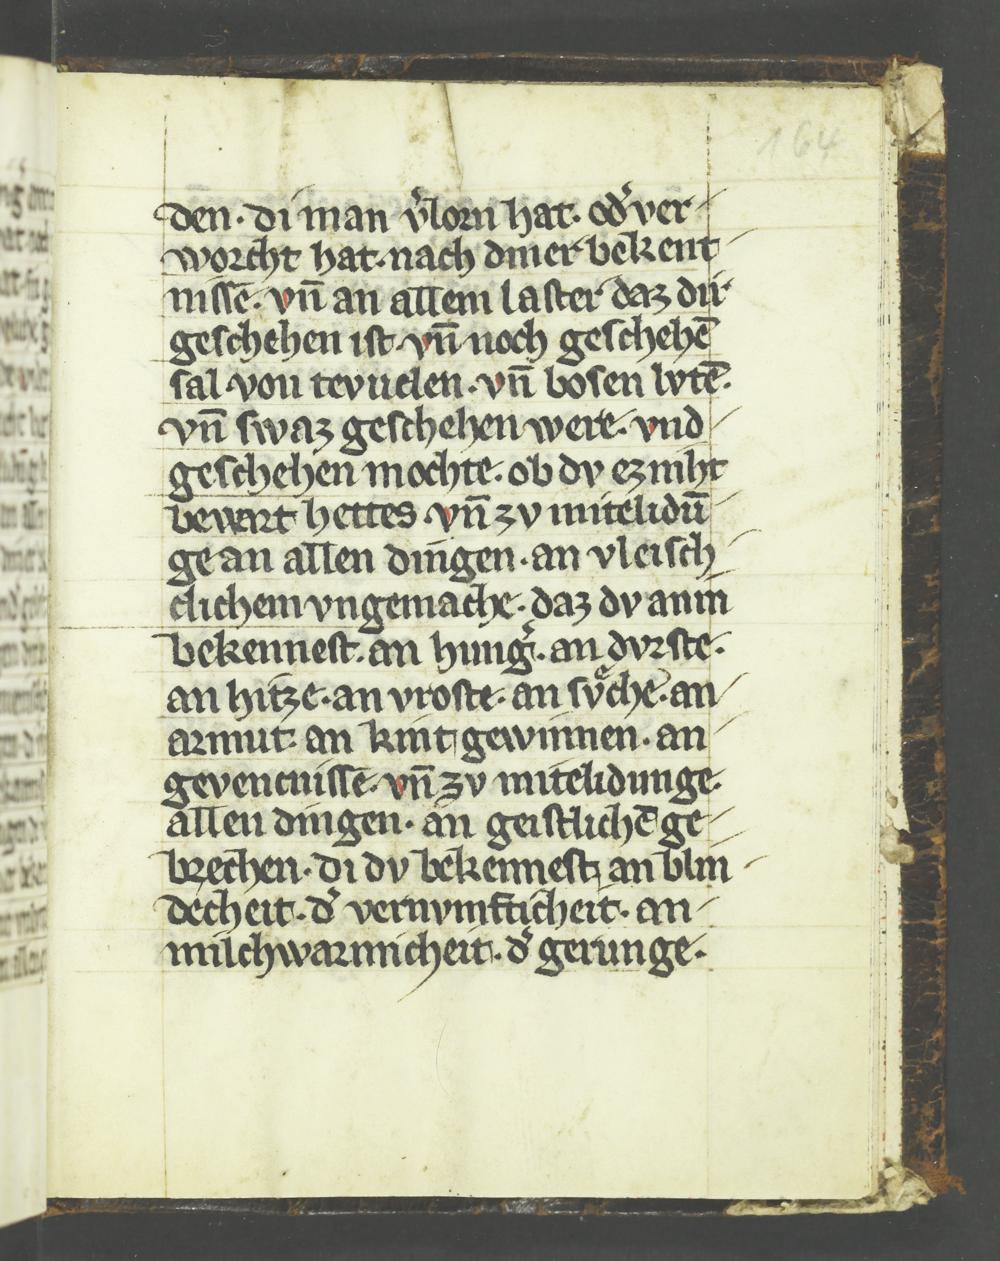 164
den · di man v̾lorn hat · od̾ ver
worcht hat · nach diner bekent
nisse · vn̄ an allem laster daz dir
geschehen ist · vn̄ noch geschehē
sal von tevuelen · vn̄ bosen lvtē ·
vn̄ swaz geschehen were · vnd
geschehen mochte · ob dv ez niht
bewart hettes · vn̄ zv mitelidū
ge an allen dingen · an vleisch
clichem vngemache · daz dv an in
bekennest · an hung̾ · an dvrste ·
an hitze · an vroste · an svͤche · an
armut · an kint gewinnen · an
gevencnisse · vn̄ zv mitelidunge
allen dingen · an geistlichē ge
brechen · di dv bekennest an blin
decheit · d̾ vernvmfticheit · an
milchwarmicheit · d̾ gerunge ·